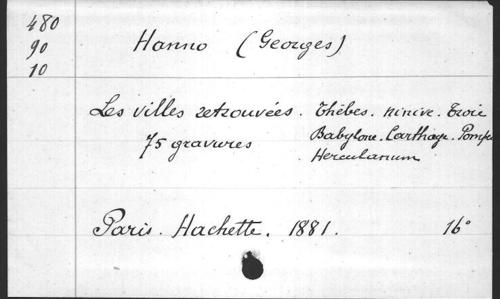 480
90
10
Hanno (Georges)
Les villes retrouvées. Thèbes. Ninive. Troie
75 gravures Babylone. Carthage. Pompei
Herculanum
Paris. Hachette. 1881. 16°